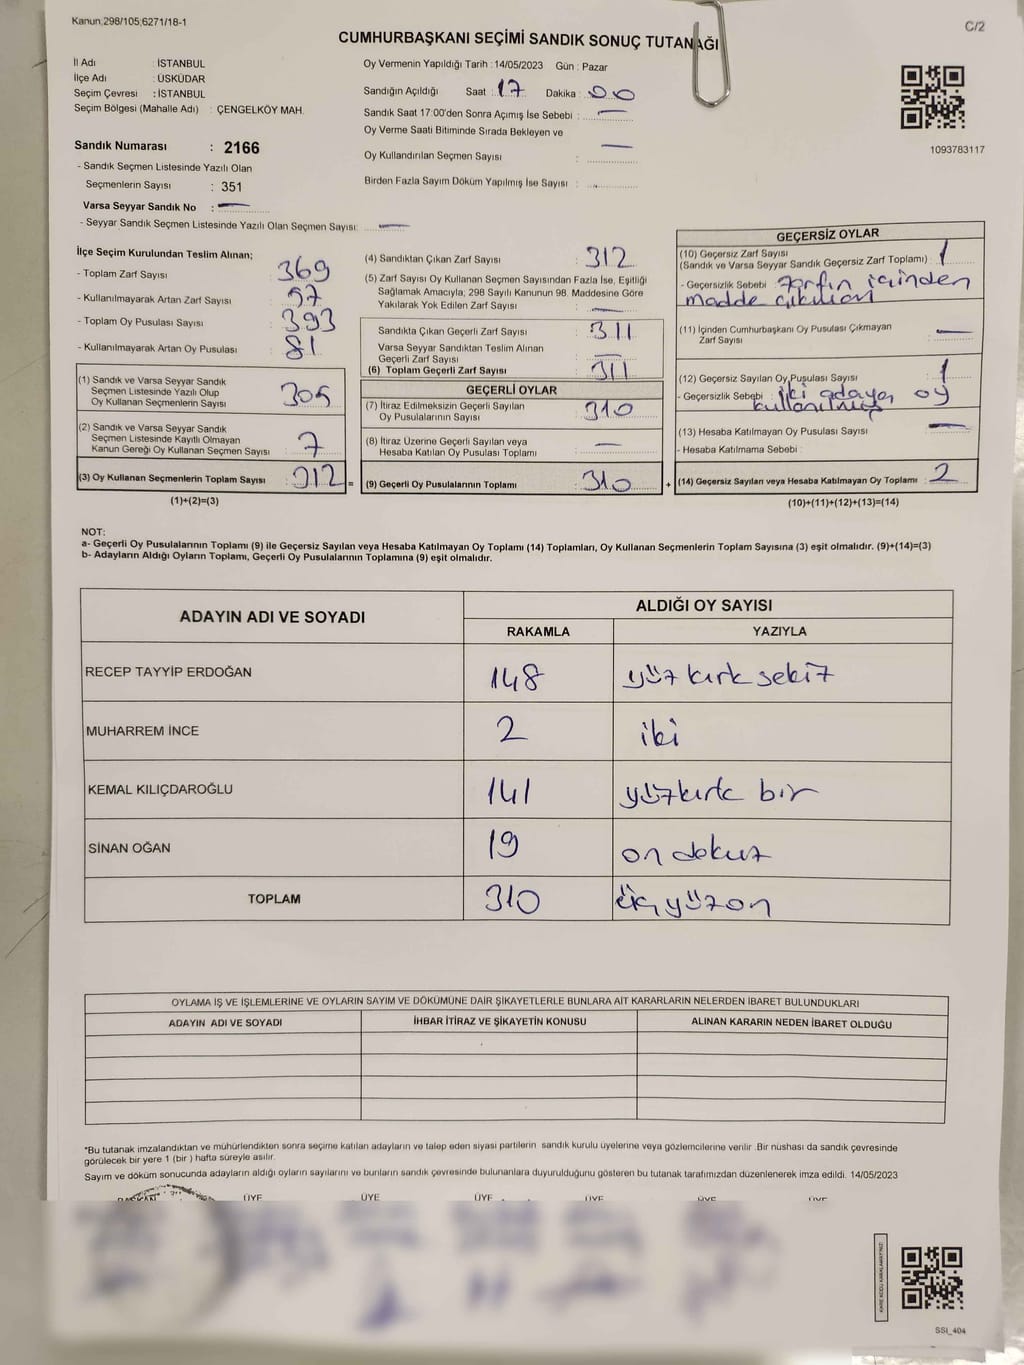 Kanun,298/105;6271/18-1
C/2
CUMHURBAŞKANI SEÇİMİ SANDIK SONUÇ TUTANAĞI
İl Adı : İSTANBUL
İlçe Adı : ÜSKÜDAR
Seçim Çevresi : İSTANBUL
Seçim Bölgesi (Mahalle Adı) : ÇENGELKÖY MAH.
Sandık Numarası : 2166
- Sandık Seçmen Listesinde Yazılı Olan
Seçmenlerin Sayısı : 351
Varsa Seyyar Sandık No : —
- Seyyar Sandık Seçmen Listesinde Yazılı Olan Seçmen Sayısı: —
Oy Vermenin Yapıldığı Tarih :14/05/2023 Gün : Pazar
Sandığın Açıldığı Saat : 17 Dakika : 00
Sandık Saat 17:00'den Sonra Açımış İse Sebebi : —
Oy Verme Saati Bitiminde Sırada Bekleyen ve
Oy Kullandırılan Seçmen Sayısı : —
Birden Fazla Sayım Döküm Yapılmış İse Sayısı :
1093783117
İlçe Seçim Kurulundan Teslim Alınan;
- Toplam Zarf Sayısı : 369
- Kullanılmayarak Artan Zarf Sayısı : 57
- Toplam Oy Pusulası Sayısı : 393
- Kullanılmayarak Artan Oy Pusulası : 81
(1) Sandık ve Varsa Seyyar Sandık
Seçmen Listesinde Yazılı Olup
Oy Kullanan Seçmenlerin Sayısı : 305
(2) Sandık ve Varsa Seyyar Sandık
Seçmen Listesinde Kayıtlı Olmayan
Kanun Gereği Oy Kullanan Seçmen Sayısı : 7
(3) Oy Kullanan Seçmenlerin Toplam Sayısı : 312 =
(1)+(2)=(3)
(4) Sandıktan Çıkan Zarf Sayısı : 312
(5) Zarf Sayısı Oy Kullanan Seçmen Sayısından Fazla İse, Eşitliği
Sağlamak Amacıyla; 298 Sayılı Kanunun 98. Maddesine Göre
Yakılarak Yok Edilen Zarf Sayısı : —
Sandıkta Çıkan Geçerli Zarf Sayısı : 311
Varsa Seyyar Sandıktan Teslim Alınan
Geçerli Zarf Sayısı : —
(6) Toplam Geçerli Zarf Sayısı : 311
GEÇERLİ OYLAR
(7) İtiraz Edilmeksizin Geçerli Sayılan
Oy Pusulalarının Sayısı : 310
(8) İtiraz Üzerine Geçerli Sayılan veya
Hesaba Katılan Oy Pusulası Toplamı : —
(9) Geçerli Oy Pusulalarının Toplamı : 310 +
GEÇERSİZ OYLAR
(10) Geçersiz Zarf Sayısı
(Sandık ve Varsa Seyyar Sandık Geçersiz Zarf Toplamı) : 1
- Geçersizlik Sebebi : Zarfın içinden
madde
(11) İçinden Cumhurbaşkanı Oy Pusulası Çıkmayan
Zarf Sayısı : —
(12) Geçersiz Sayılan Oy Pusulası Sayısı : 1
- Geçersizlik Sebebi : iki adaya oy
kullanılmış
(13) Hesaba Katılmayan Oy Pusulası Sayısı : —
- Hesaba Katılmama Sebebi :
(14) Geçersiz Sayılan veya Hesaba Katılmayan Oy Toplamı : 2
(10)+(11)+(12)+(13)=(14)
NOT:
a- Geçerli Oy Pusulalarının Toplamı (9) ile Geçersiz Sayılan veya Hesaba Katılmayan Oy Toplamı (14) Toplamları, Oy Kullanan Seçmenlerin Toplam Sayısına (3) eşit olmalıdır. (9)+(14)=(3)
b- Adayların Aldığı Oyların Toplamı, Geçerli Oy Pusulalarının Toplamına (9) eşit olmalıdır.
ADAYIN ADI VE SOYADI
ALDIĞI OY SAYISI
RAKAMLA YAZIYLA
RECEP TAYYİP ERDOĞAN 148 yüz kırk sekiz
MUHARREM İNCE 2 iki
KEMAL KILIÇDAROĞLU 141 yüzkırk bir
SİNAN OĞAN 19 on dokuz
TOPLAM 310 üç yüz on
OYLAMA İŞ VE İŞLEMLERİNE VE OYLARIN SAYIM VE DÖKÜMÜNE DAİR ŞİKAYETLERLE BUNLARA AİT KARARLARIN NELERDEN İBARET BULUNDUKLARI
ADAYIN ADI VE SOYADI İHBAR İTİRAZ VE ŞİKAYETİN KONUSU ALINAN KARARIN NEDEN İBARET OLDUĞU
*Bu tutanak imzalandıktan ve mühürlendikten sonra seçime katılan adayların ve talep eden siyasi partilerin sandık kurulu üyelerine veya gözlemcilerine verilir .Bir nüshası da sandık çevresinde
görülecek bir yere 1 (bir ) hafta süreyle asılır.
Sayım ve döküm sonucunda adayların aldığı oyların sayılarını ve bunların sandık çevresinde bulunanlara duyurulduğunu gösteren bu tutanak tarafımızdan düzenlenerek imza edildi. 14/05/2023
BAŞKAN ÜYE ÜYE ÜYE ÜYE ÜYE ÜYE
SSI_404